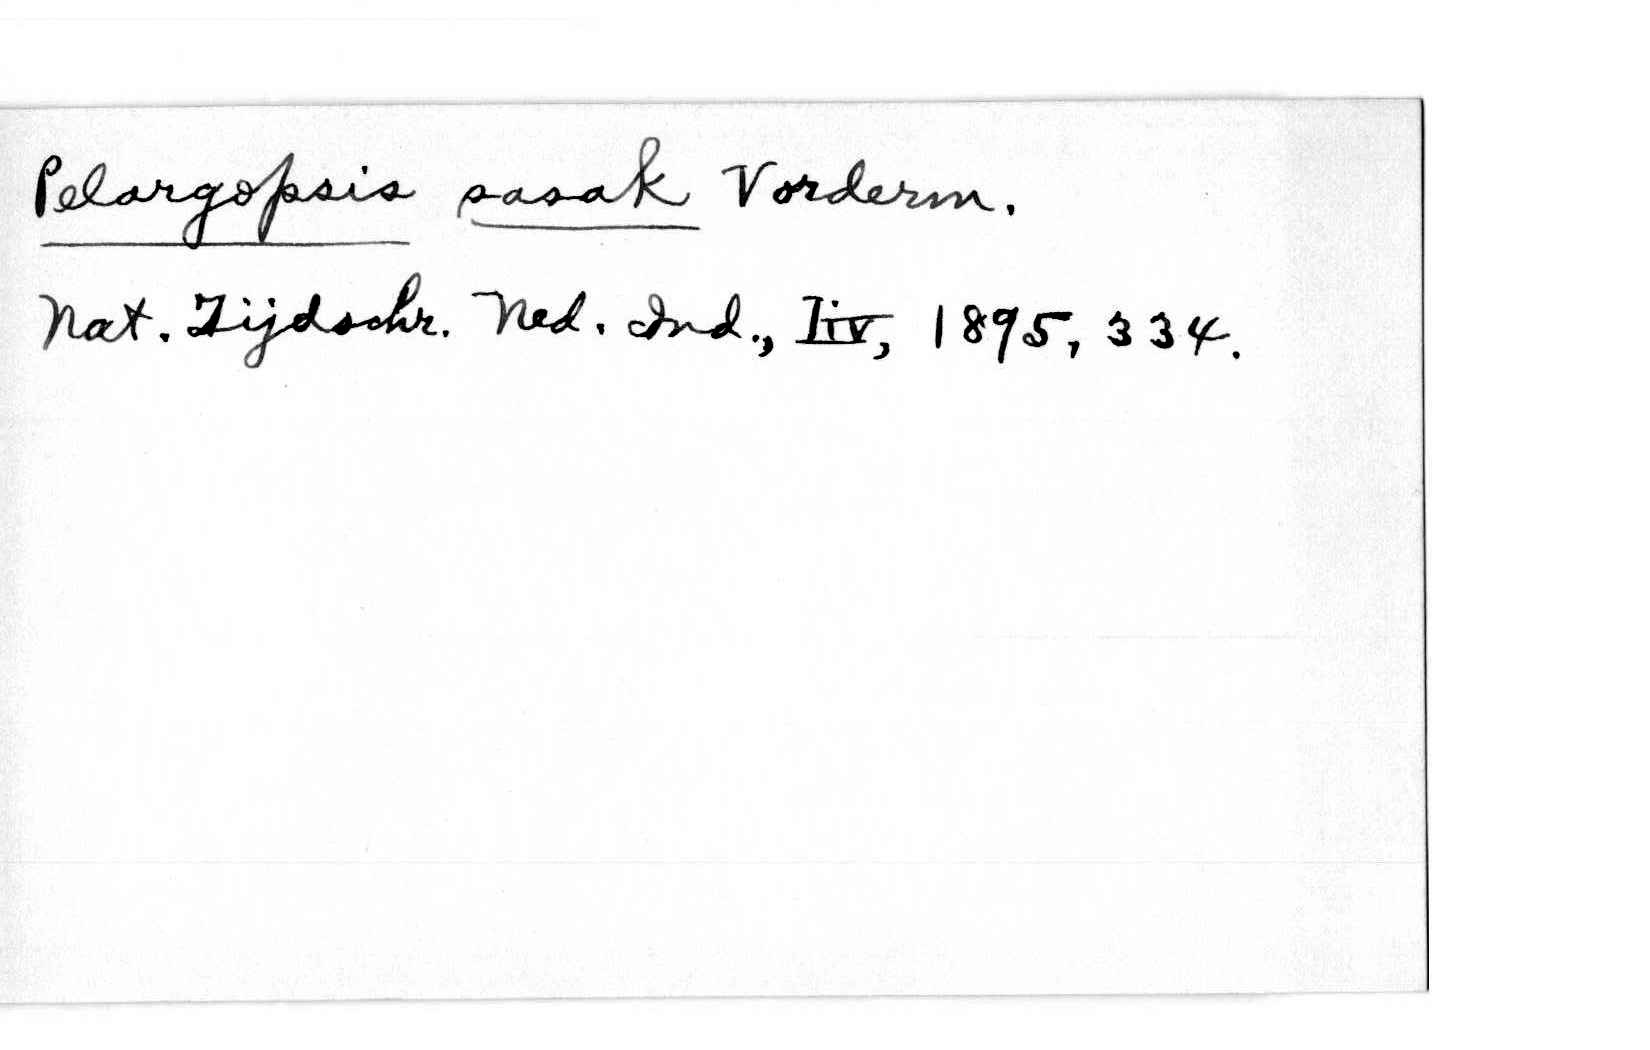 Pelargopsis sasak Vorderm.
Nat. Tijdschr. Ned. Ind., Liv, 1895, 334.